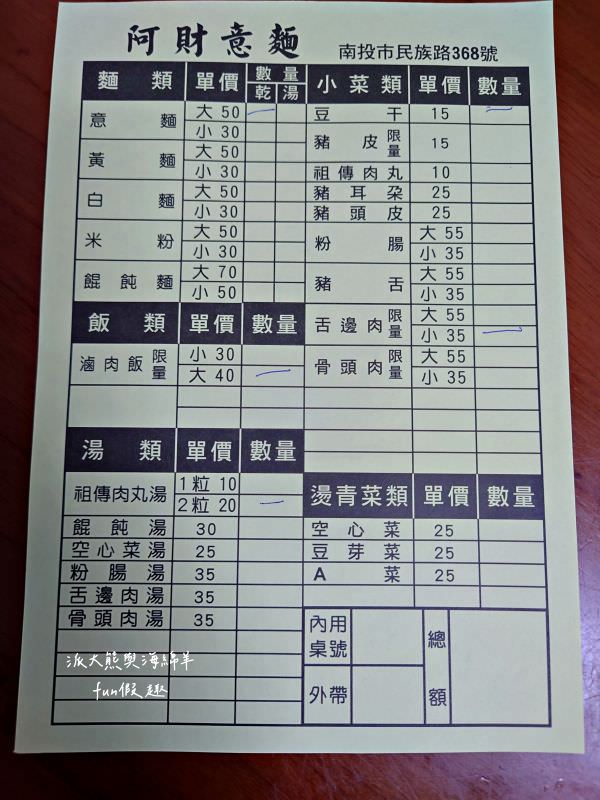 阿財意麵
南投市民族路368號
麵類 單價 數量
乾 湯
意麵 大 50 一
小 30
黃麵 大 50
小 30
白麵 大 50
小 30
米粉 大 50
小 30
餛飩麵 大 70
小 50
飯類 單價 數量
滷肉飯 限量 小 30
大 40 一
湯類 單價 數量
祖傳肉丸湯 1粒 10
2粒 20 一
餛飩湯 30
空心菜湯 25
粉腸湯 35
舌邊肉湯 35
骨頭肉湯 35
小菜類 單價 數量
豆干 15 一
豬皮 限量 15
祖傳肉丸 10
豬耳朶 25
豬頭皮 25
粉腸 大 55
小 35
豬舌 大 55
小 35
舌邊肉 限量 大 55
小 35 一
骨頭肉 限量 大 55
小 35
燙青菜類 單價 數量
空心菜 25
豆芽菜 25
A菜 25
內用桌號
外帶
總額
派大熊與海綿羊
fun假趣